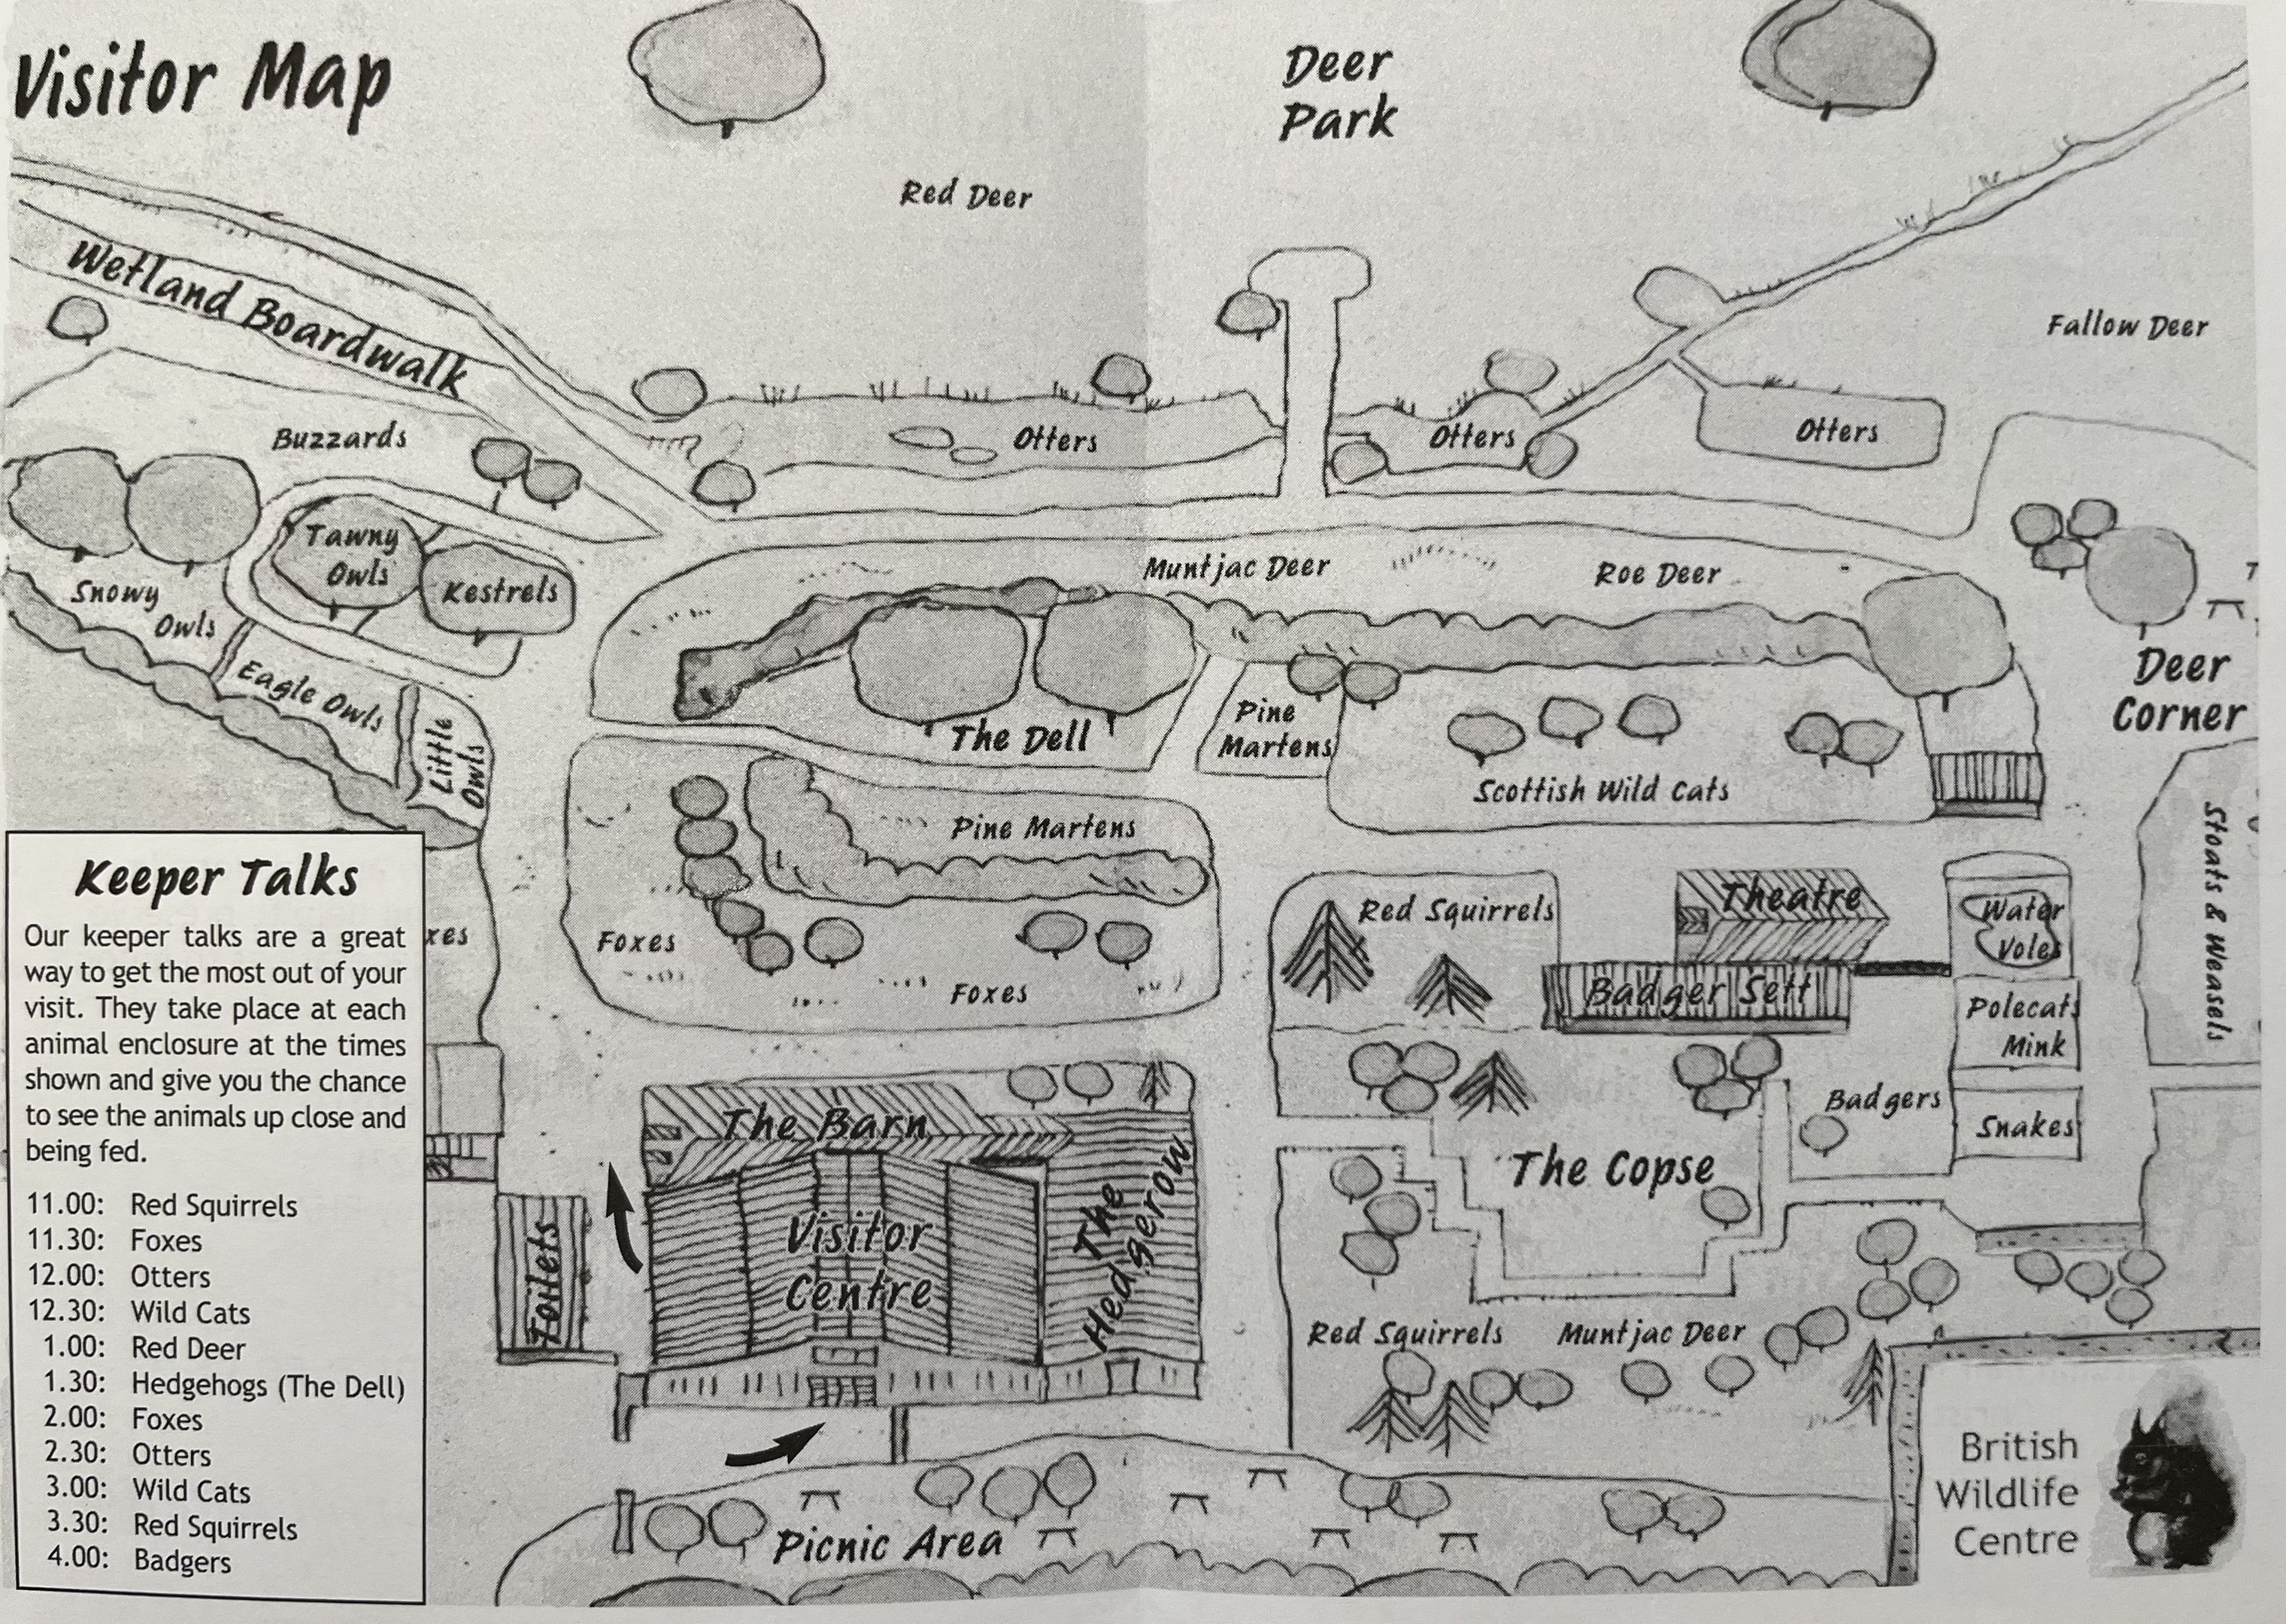 Visitor Map
Deer
Park
Red Deer
Wetland Boardwalk
Fallow Deer
Buzzards
Otters
Otters
Otters
Tawny
Owls
Kestrels
Snowy
Owls
Muntjac Deer
Roe Deer
Eagle Owls
Little
Owls
The Dell
Pine
Martens
Deer
Corner
Scottish Wild Cats
Pine Martens
Stoats & Weasels
Foxes
Foxes
xes
Red Squirrels
Theatre
Water
Voles
Badger Sett
Polecats
Mink
Badgers
Snakes
The Barn
The Copse
The
Hedgerow
Visitor
Centre
Toilets
Red Squirrels
Muntjac Deer
Picnic Area
Keeper Talks
Our keeper talks are a great
way to get the most out of your
visit. They take place at each
animal enclosure at the times
shown and give you the chance
to see the animals up close and
being fed.
11.00: Red Squirrels
11.30: Foxes
12.00: Otters
12.30: Wild Cats
1.00: Red Deer
1.30: Hedgehogs (The Dell)
2.00: Foxes
2.30: Otters
3.00: Wild Cats
3.30: Red Squirrels
4.00: Badgers
British
Wildlife
Centre